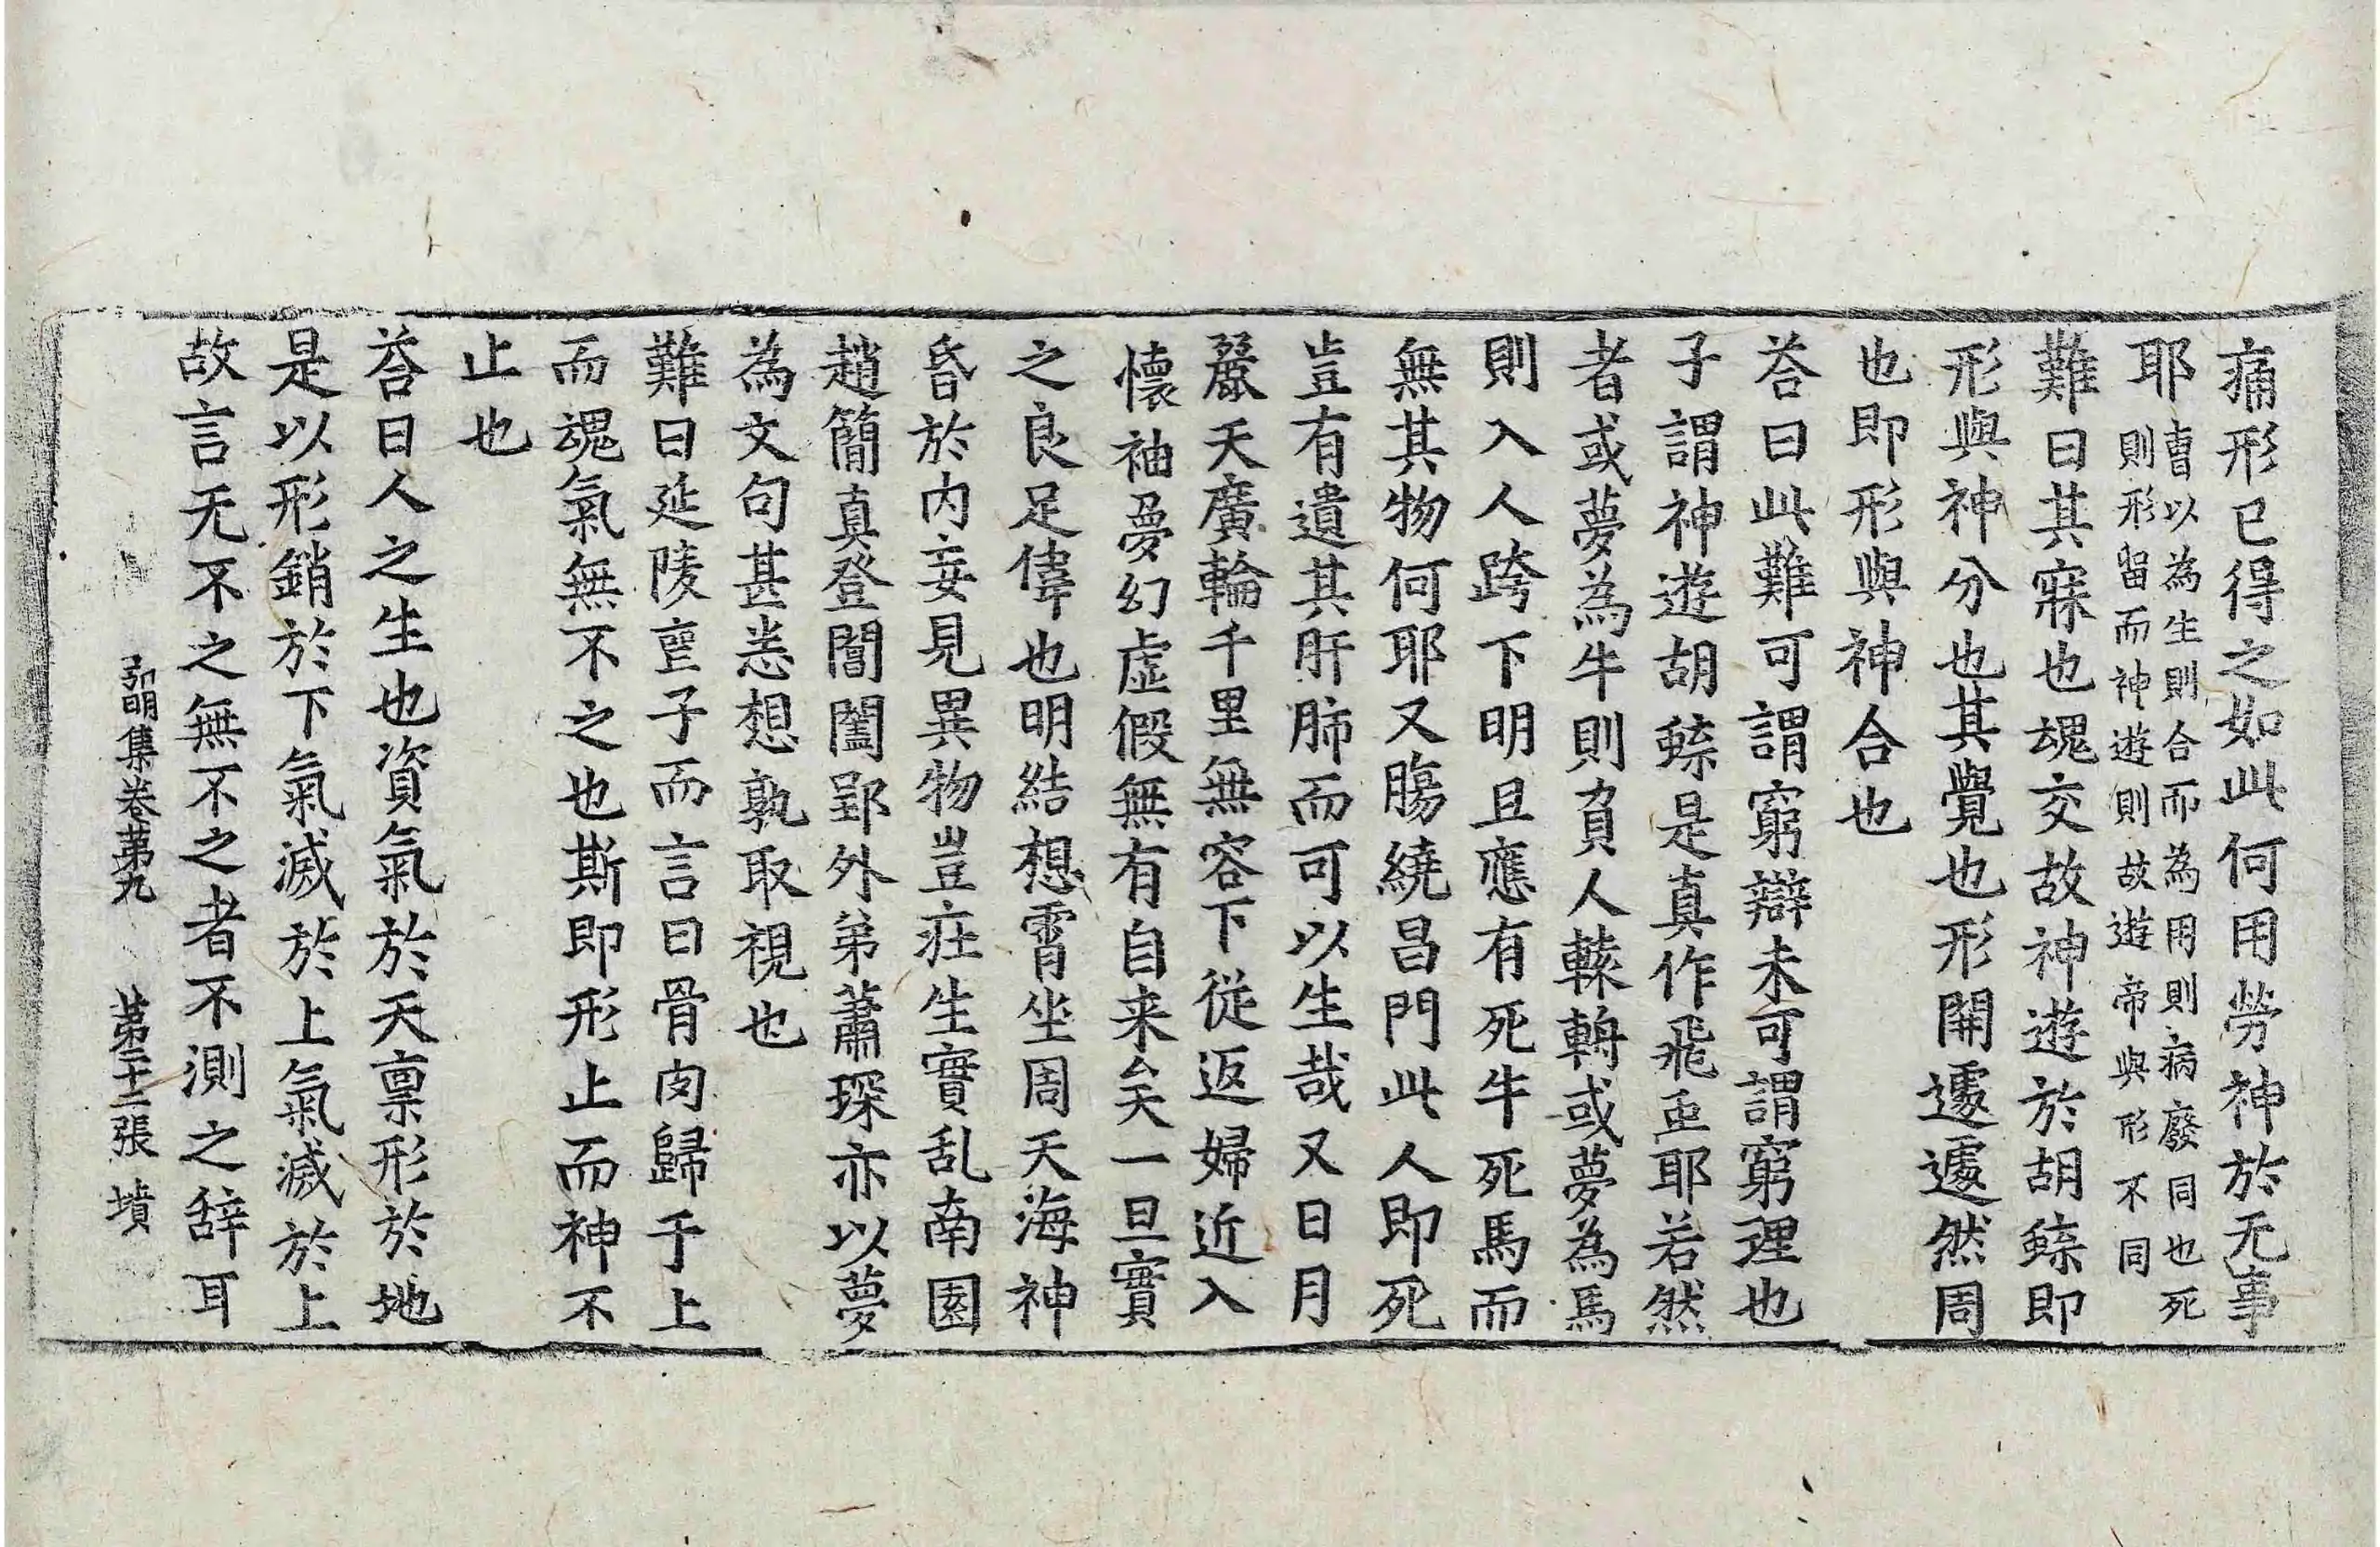 痛形已得之如此何用勞神於无事
耶曺以為生則合而為用則病廢同也死
則形留而神遊則故遊帝與形不同
難曰其寐也魂交故神遊於胡䗥即
形與神分也其覺也形開遽遽然周
也即形與神合也
荅曰此難可謂窮辯未可謂窮理也
子謂神遊胡䗥是真作飛䖝耶若然
者或夢為牛則負人轅輈或夢為馬
則入人跨下明且應有死牛死馬而
無其物何耶又膓繞昌門此人即死
豈有遺其肝肺而可以生哉又日月
麗天廣輪千里無容下從返婦近入
懷袖夢幻虛假無有自来矣一旦實
之良足偉也明結想霄坐周天海神
昏於內妄見異物豈㽵生實乱南園
趙簡真登閶闔郢外弟蕭琛亦以夢
為文句甚悉想孰取視也
難曰延陵窆子而言曰骨肉歸于上
而魂氣無不之也斯即形止而神不
止也
荅曰人之生也資氣於天禀形於地
是以形銷於下氣滅於上氣滅於上
故言无不之無不之者不測之辞耳
弘明集卷苐九 苐二十二張 墳